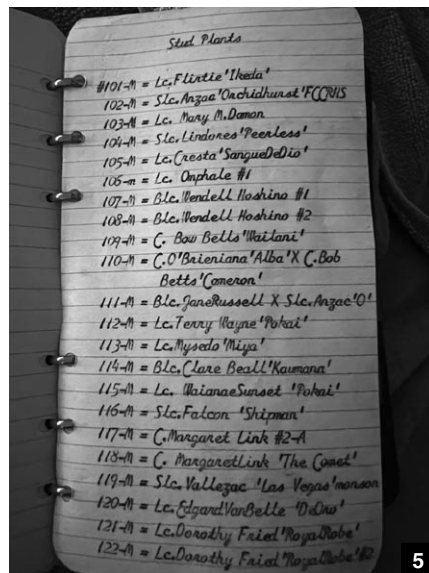 Stud Plants
#101-M = Lc.Flirtie'Ikeda'
102-M = Slc.Anzac'Orchidhurst'FCCRHS
103-M = Lc. Mary M.Damon
104-M = Slc.Lindores'Peerless'
105-M = Lc.Cresta'SangueDeDio'
106-m = Lc. Omphale #1
107-M = Blc.Wendell Hoshino #1
108-M = Blc.Wendell Hoshino #2
109-M = C. Bow Bells'Wailani'
110-M = C.O'Brieniana'Alba'X C.Bob
Betts'Cameron'
111-M = Blc.JaneRussell X Slc.Anzac'O'
112-M = Lc.Terry Wayne'Pokai'
113-M = Lc.Mysedo'Miya'
114-M = Blc.Clare Beall'Kaumana'
115-M = Lc. WaianaeSunset 'Pokai'
116-M = Slc.Falcon 'Shipman'
117-M = C.Margaret Link #2-A
118-M = C. MargaretLink 'The Comet'
119-M = Slc.Vallezac 'Las Vegas'monson
120-M = Lc.EdgardVanBelle 'DeOro'
121-M = Lc.Dorothy Fried'RoyalRobe'
122-M = Lc.Dorothy Fried'RoyalRobe'#2
5